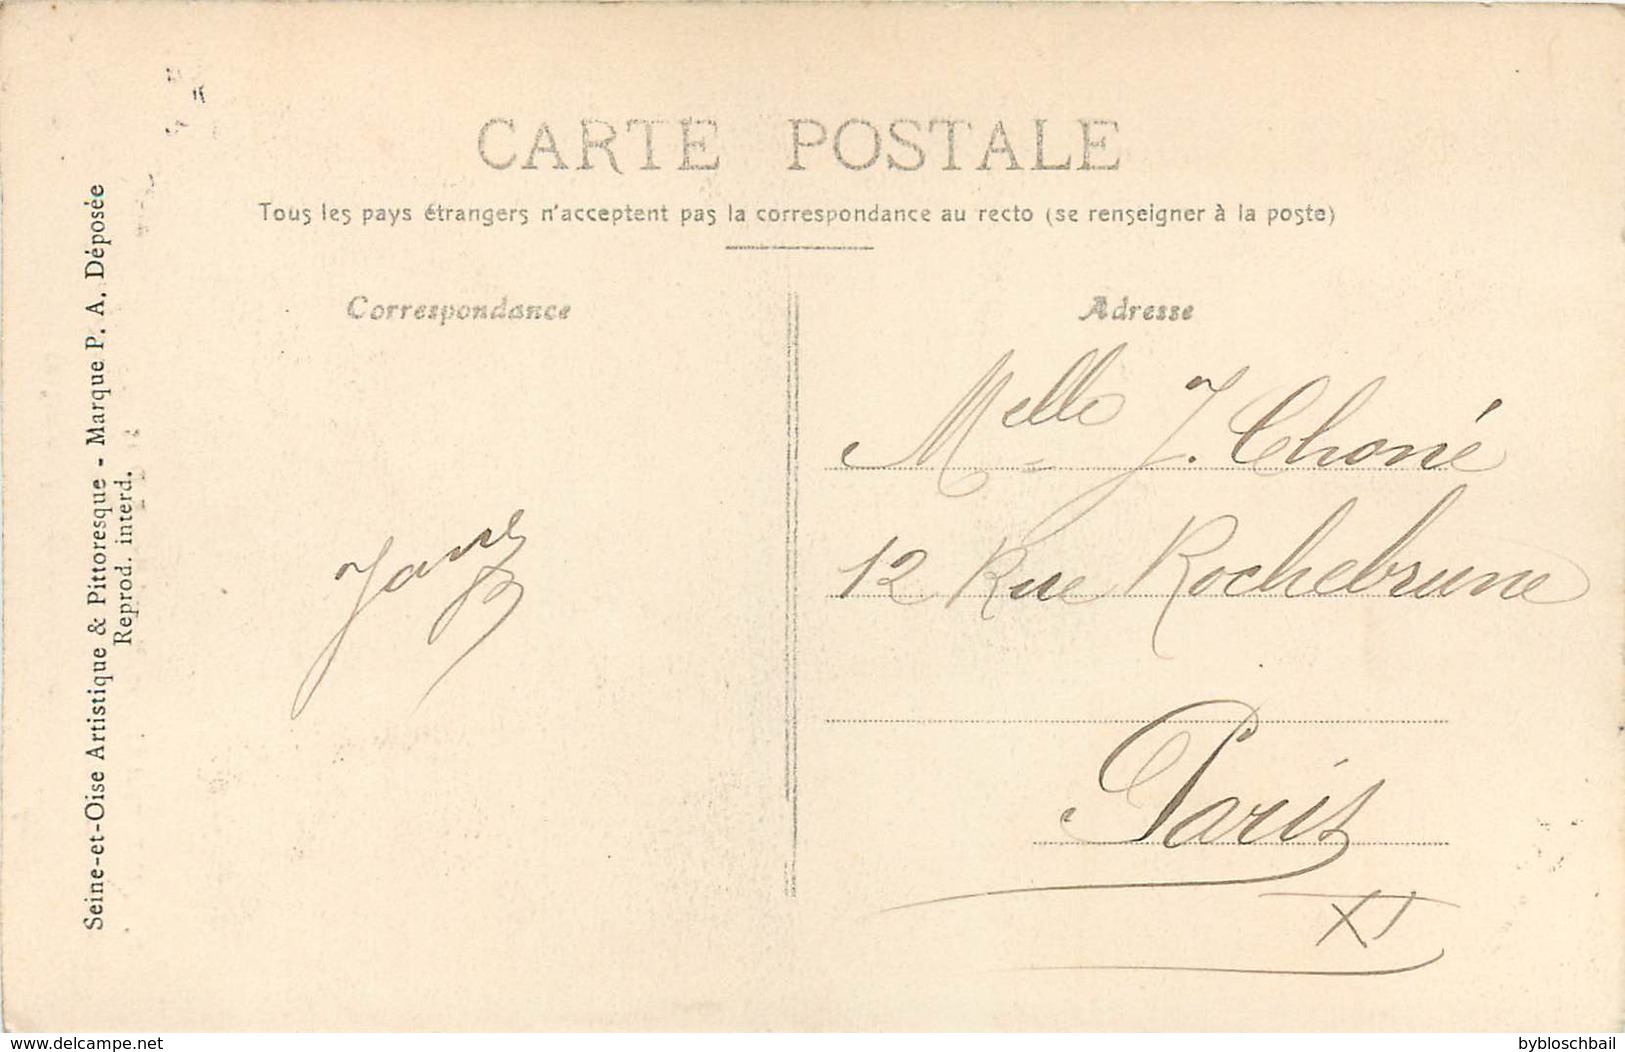 CARTE POSTALE
Tous les pays étrangers n'acceptent pas la correspondance au recto (se renseigner à la poste)
Correspondance
Adresse
Melle J. Choné
12 Rue Rochebrune
Paris
XI
Seine-et-Oise Artistique & Pittoresque - Marque P. A. Déposée
Reprod. interd.
www.delcampe.net
bybloschbail